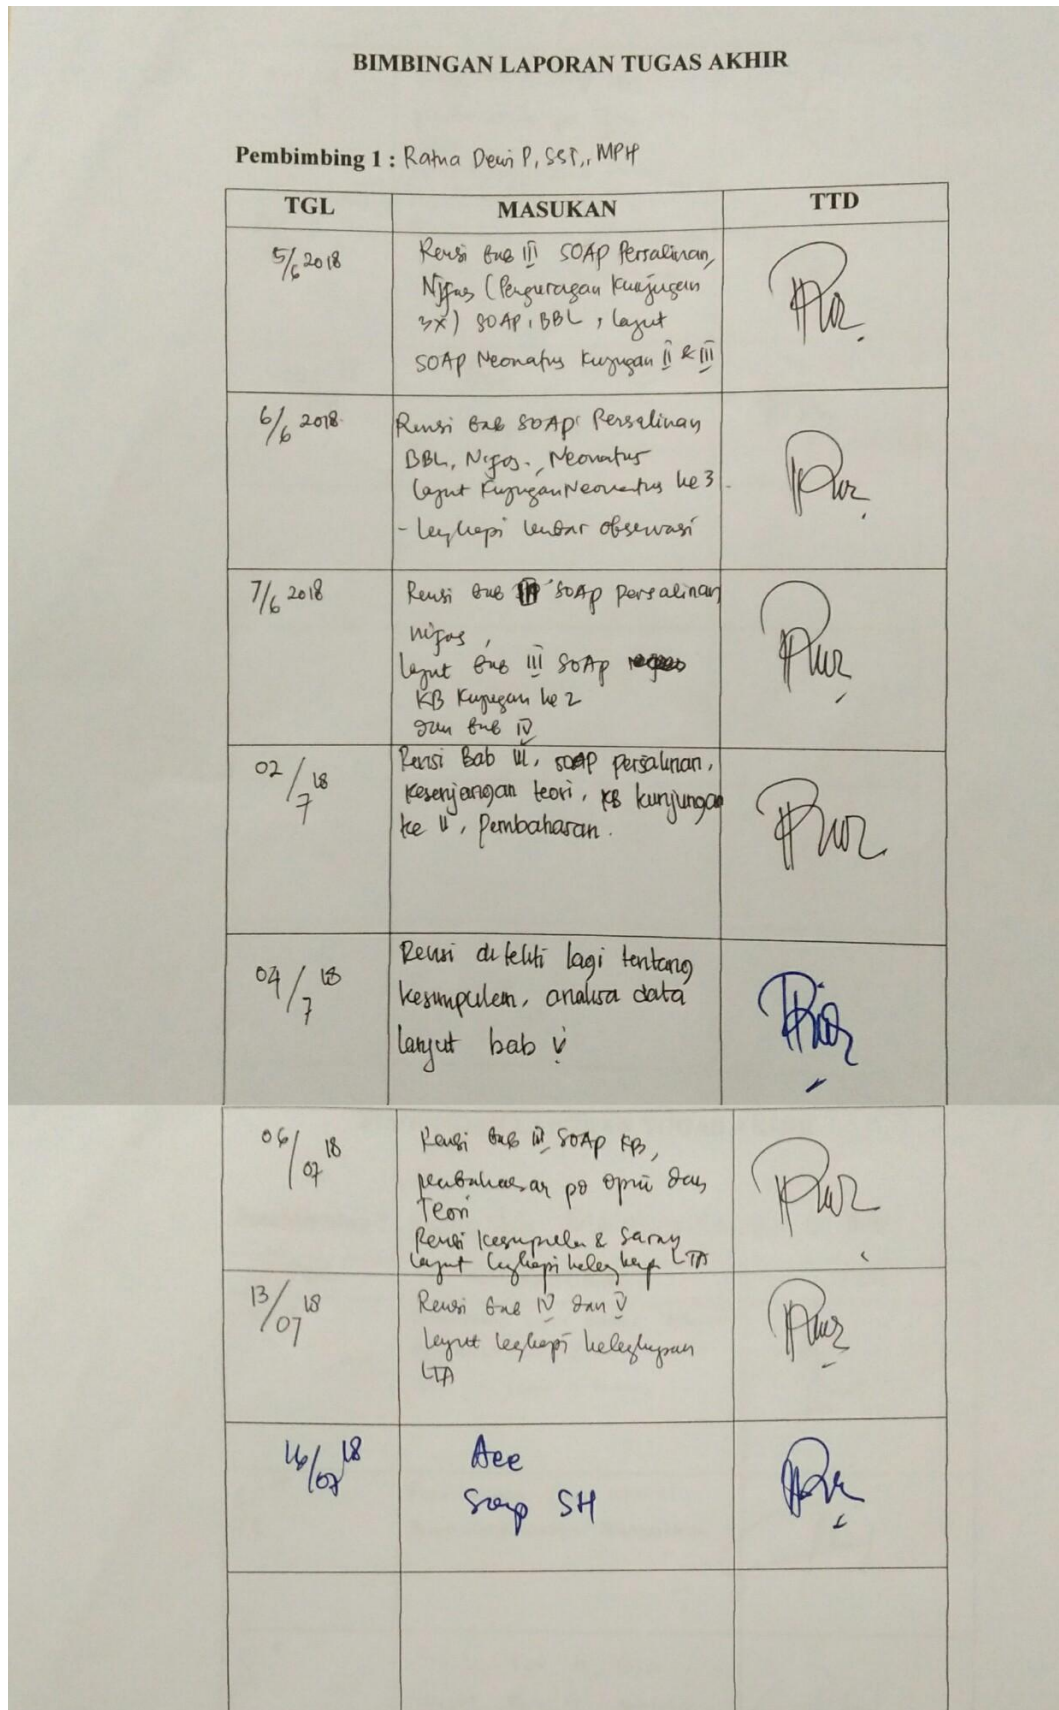 BIMBINGAN LAPORAN TUGAS AKHIR
Pembimbing 1 : Ratna Dewi P, SST,, MPH
TGL MASUKAN TTD
5/6 2018 Revisi Bab III SOAP Persalinan,
Nifas (Pengurangan Kunjungan
3x) SOAP, BBL, lanjut
SOAP Neonatus Kunjungan II & III
6/6 2018 Revisi Bab SOAP Persalinan
BBL, Nifas., Neonatus
lanjut Kunjungan Neonatus ke 3
- lengkapi lembar observasi
7/6 2018 Revisi Bab III SOAP persalinan
nifas,
lanjut Bab III SOAP
KB Kunjungan ke 2
dan Bab IV
02/7 18 Revisi Bab III, SOAP persalinan,
kesenjangan teori, KB kunjungan
ke II, Pembahasan.
04/7 18 Revisi diteliti lagi tentang
kesimpulan, analisa data
lanjut bab V
06/07 18 Revisi Bab III SOAP KB,
pembahasan opini dan
Teori
Revisi Kesimpulan & Saran
lanjut lengkapi kelengkapan LTA
13/07 18 Revisi Bab IV dan V
lanjut lengkapi kelengkapan
LTA
16/07 18 Acc
Siap SH